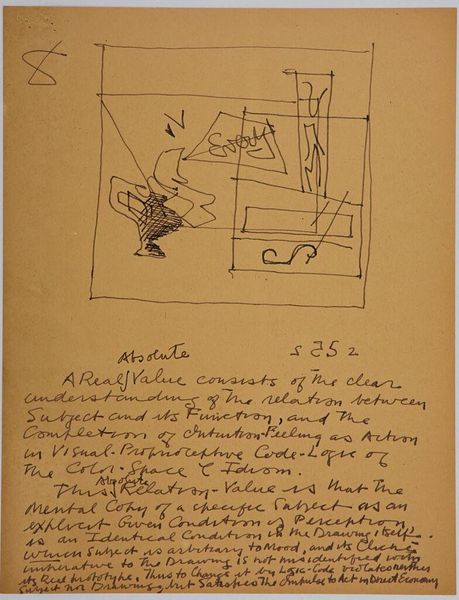 8
Absolute
A Real Value consists of the clear
understanding of the relation between
Subject and its Function, and the
Completion of Intuition-Feeling as Action
in Visual-Proprioceptive Code-Logic of
The Color-Space & Idiom.
Absolute
This Relation-Value is that the
Mental Copy of a specific Subject as an
explicit Given Condition of Perception
is an Identical Condition in the Drawing itself.
which Subject is arbitrary to Mood, and its Cliché
imperative to the Drawing is not misidentified with
its Real prototype, Thus to Change it by Logic-Code violates neither
Subject nor Drawing, but Satisfies The Impulse to Act in Direct Economy